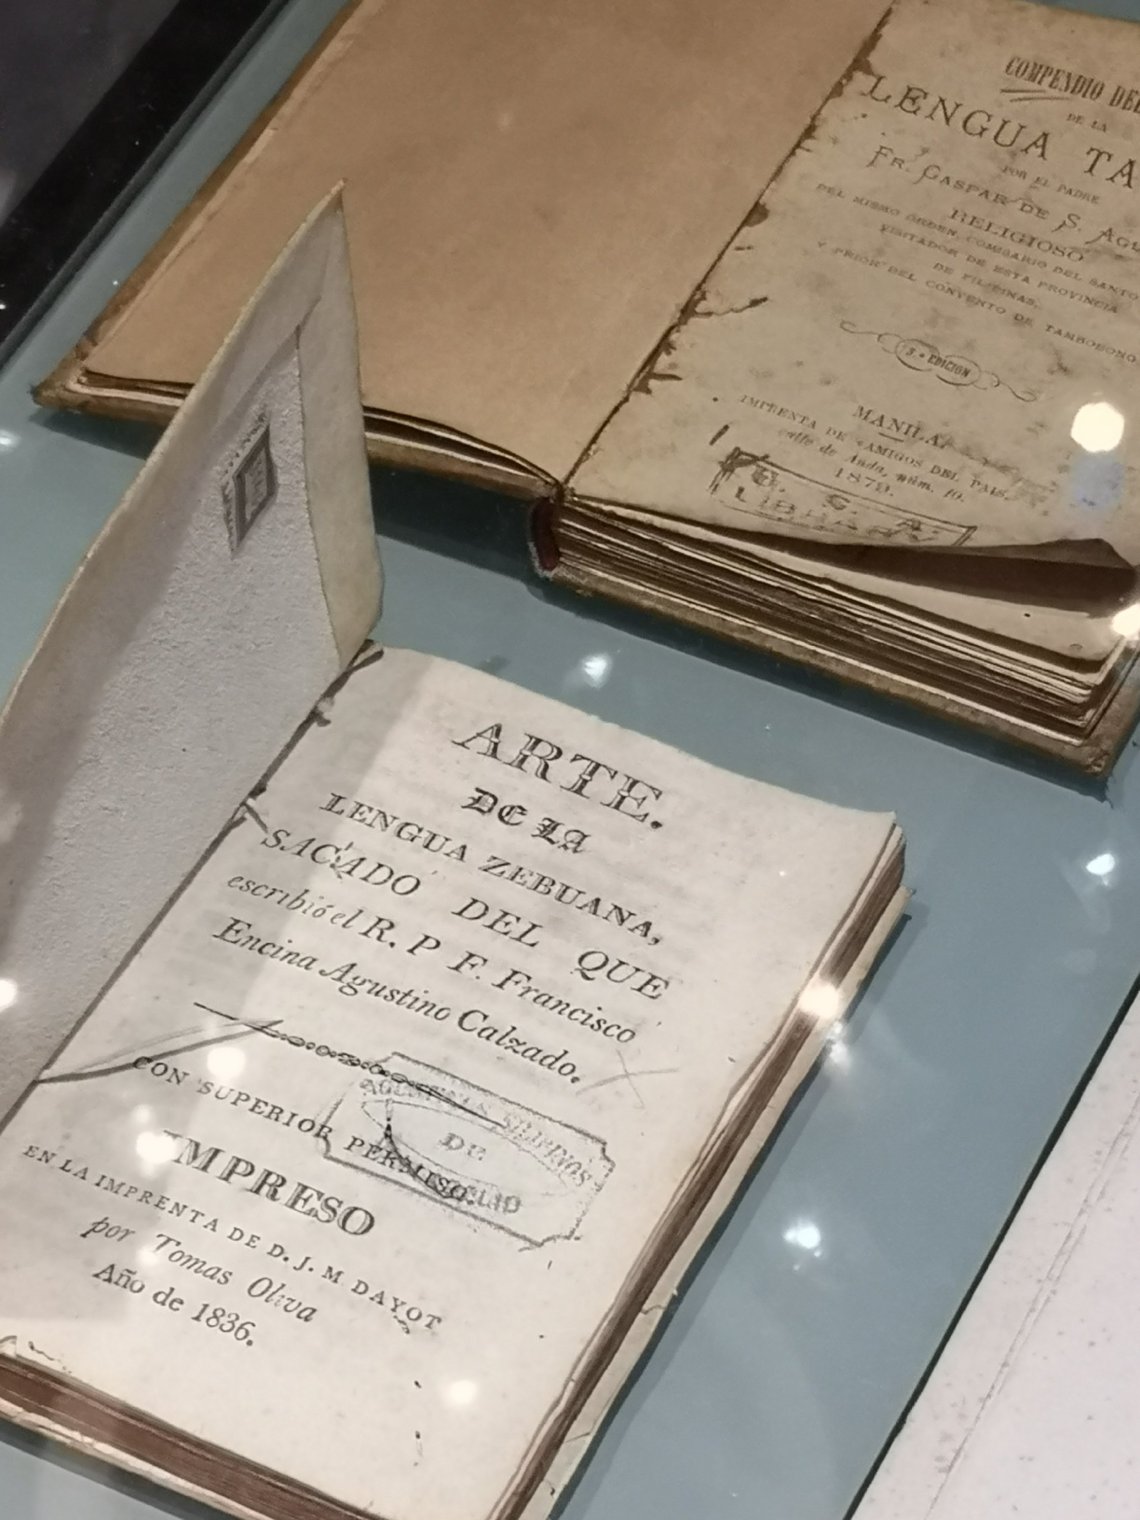 COMPENDIO DEL
DE LA
LENGUA TA
POR EL PADRE
FR. GASPAR DE S. AGU
RELIGIOSO
DEL MISMO ORDEN, COMISARIO DEL SANTO
VISITADOR DE ESTA PROVINCIA
DE FILIPINAS,
Y PRIOR DEL CONVENTO DE TAMBOBONG
3.a EDICION
MANILA
IMPRENTA DE «AMIGOS DEL PAIS,
calle de Anda, núm. 10.
1879.
LIBRARY
ARTE.
DE LA
LENGUA ZEBUANA,
SACADO DEL QUE
escribió el R. P F. Francisco
Encina Agustino Calzado.
AGUSTINOS FILIPINOS
DE
CON SUPERIOR PERMISO.
IMPRESO
EN LA IMPRENTA DE D. J. M DAYOT
por Tomas Oliva
Año de 1836.